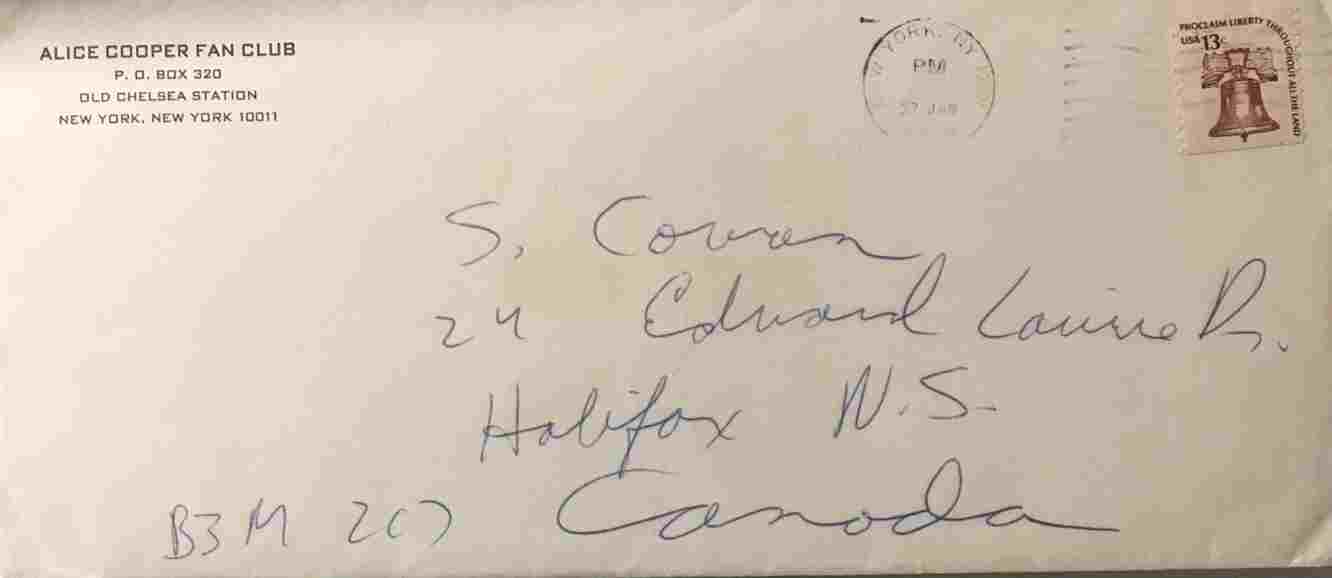 ALICE COOPER FAN CLUB
P. O. BOX 320
OLD CHELSEA STATION
NEW YORK, NEW YORK 10011
YORK, NY
PM
27 JAN
PROCLAIM LIBERTY THROUGHOUT ALL THE LAND
USA 13c
S. Cowan
24 Edward Laurie Dr.
Halifax N.S.
B3M 2C7 Canada